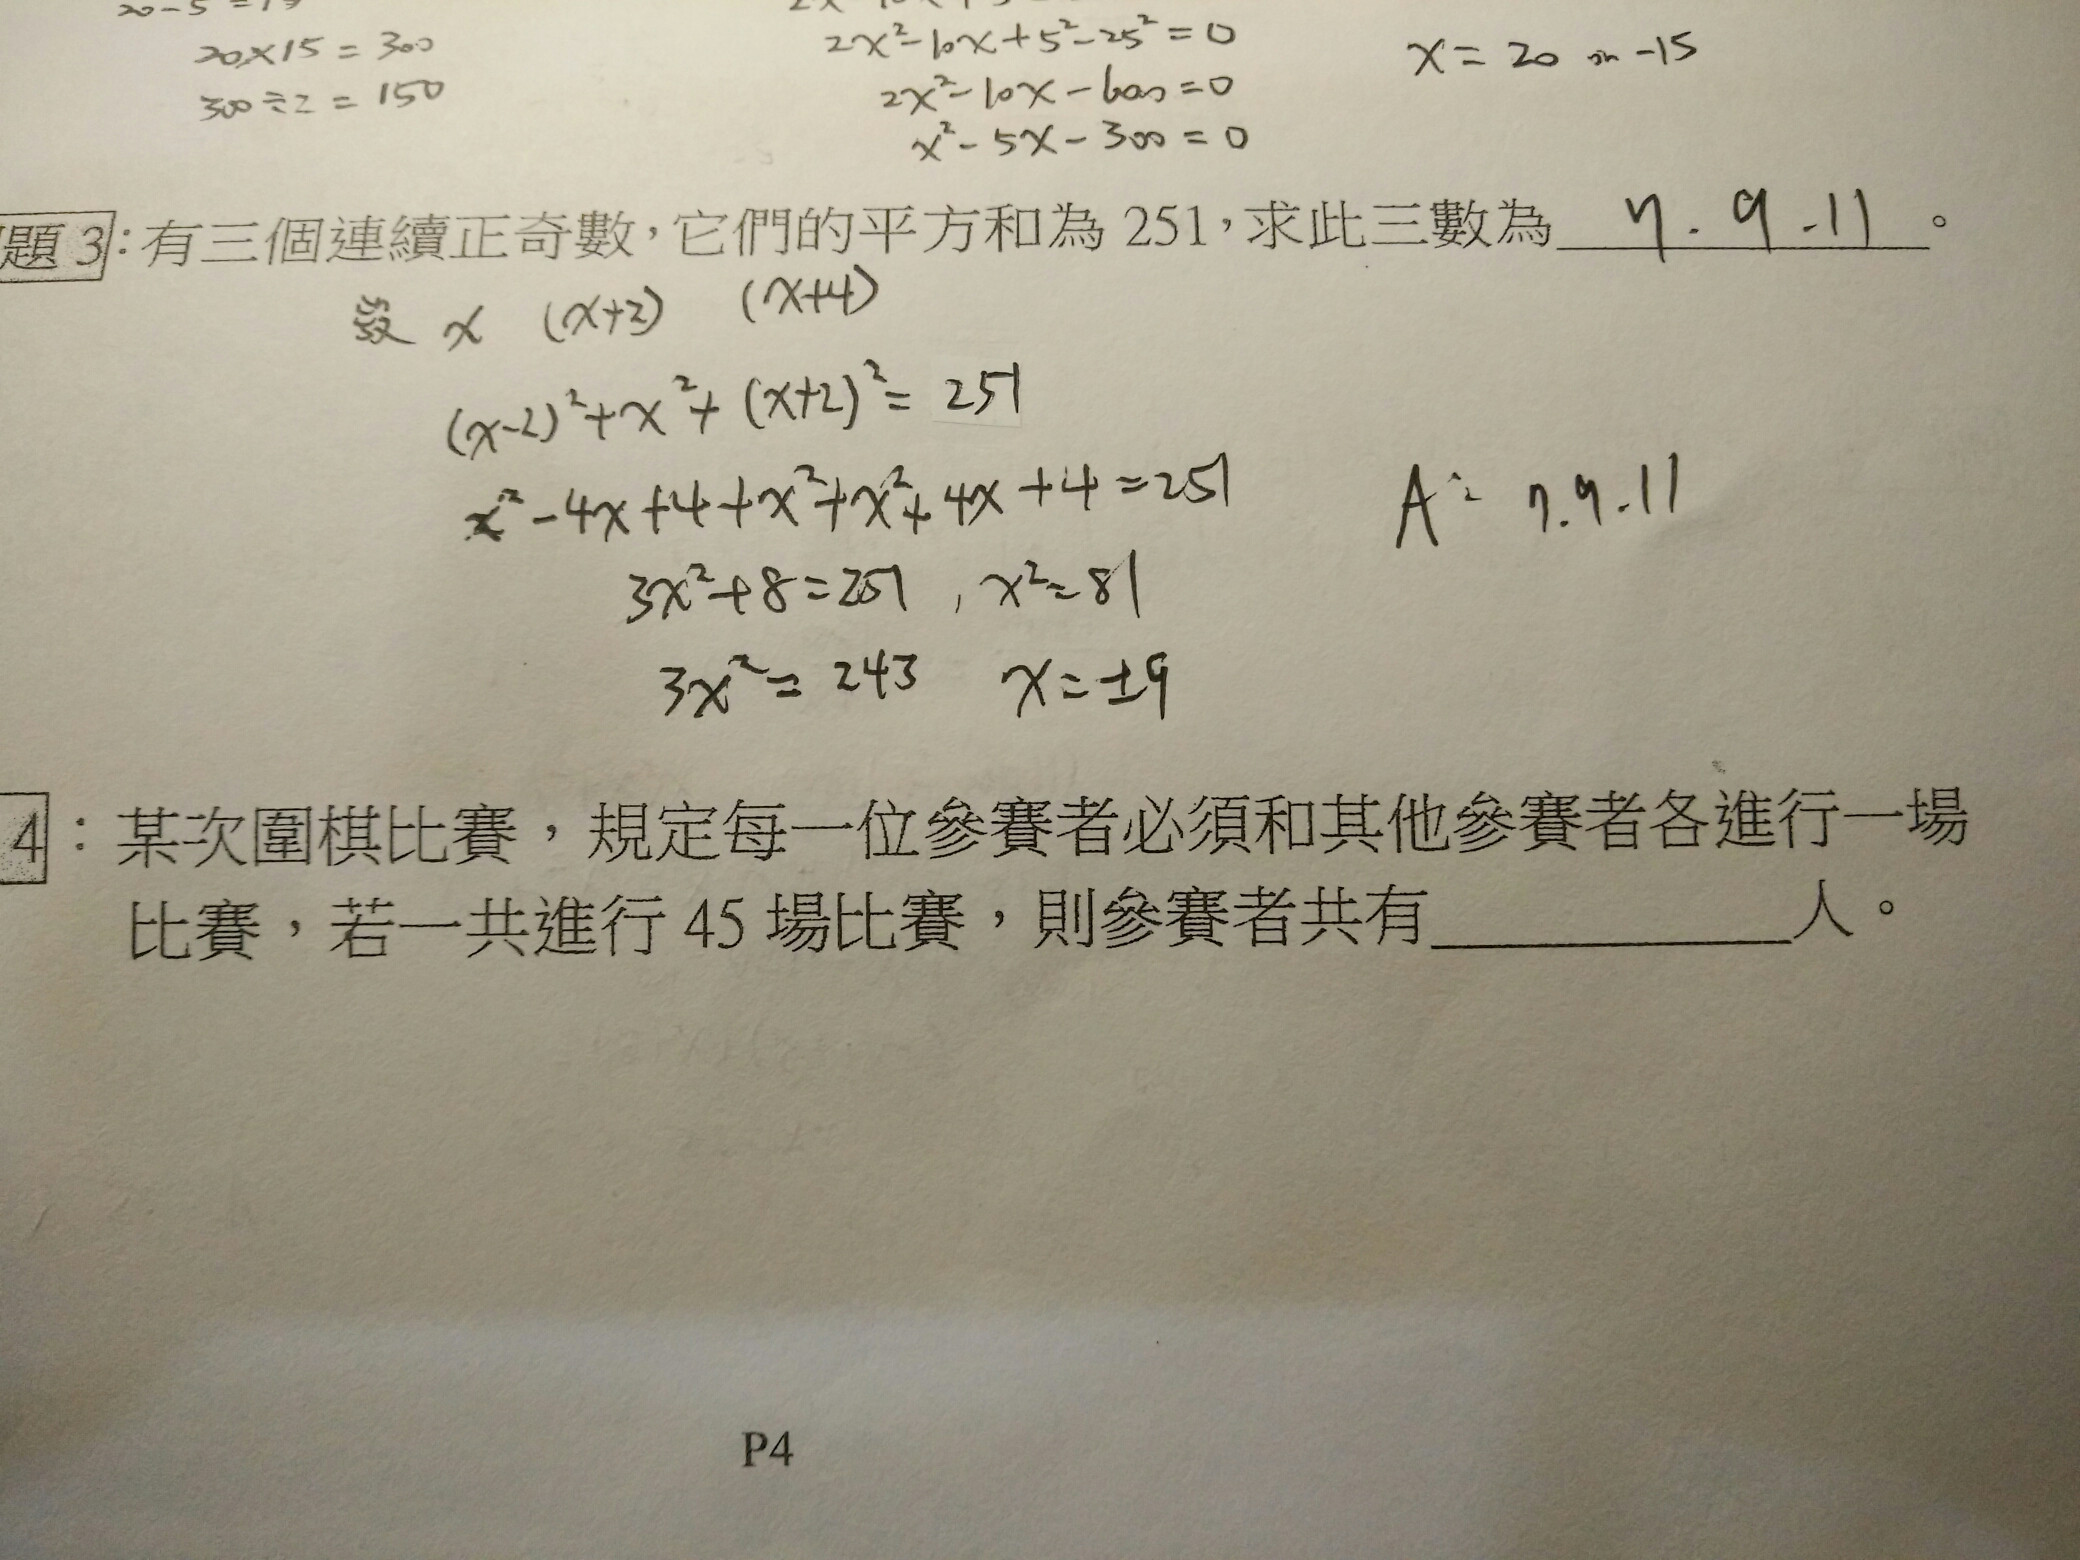 20-5=15
20×15=300
300÷2=150
2x²-10x+5²-25²=0
2x²-10x-600=0
x²-5x-300=0
x=20 or -15
題3:有三個連續正奇數,它們的平方和為251,求此三數為 7.9.11 。
設 x (x+2) (x+4)
(x-2)²+x²+(x+2)²=251
x²-4x+4+x²+x²+4x+4=251
3x²+8=251, x²=81
3x²=243 x=±9
A: 7.9.11
4:某次圍棋比賽,規定每一位參賽者必須和其他參賽者各進行一場
比賽,若一共進行45場比賽,則參賽者共有______人。
P4